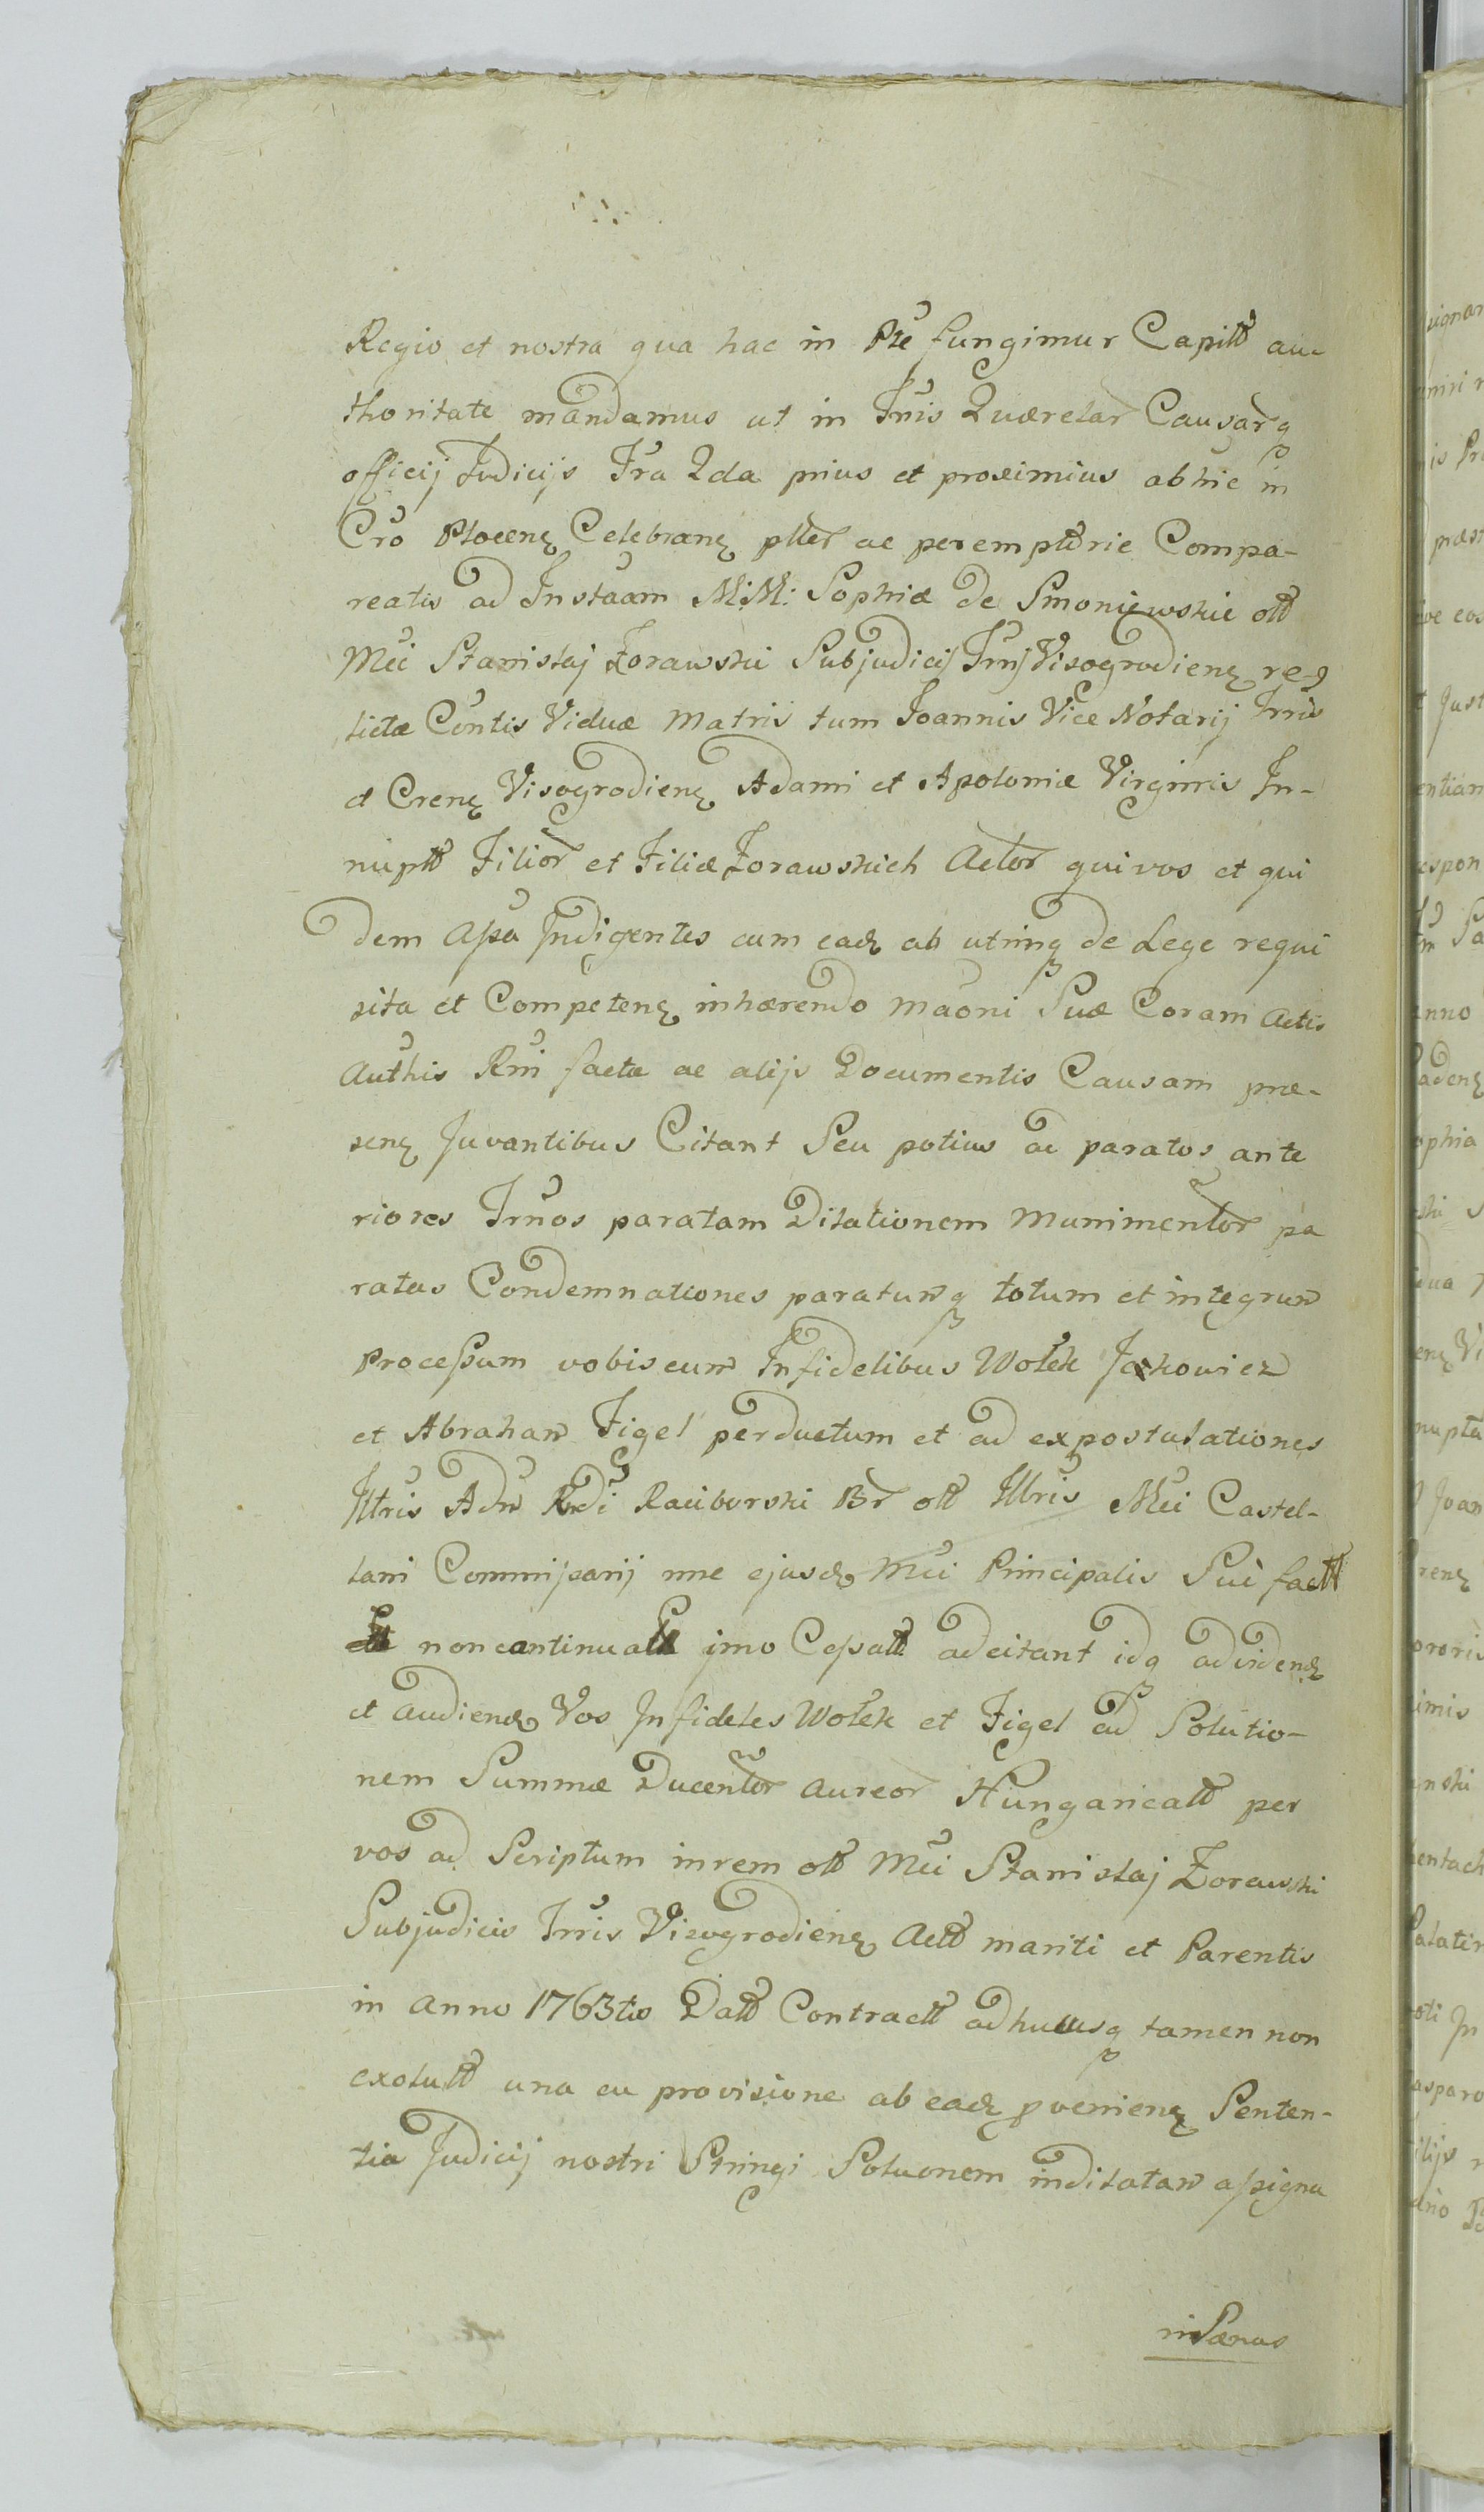 Regio et nostra qua hac in Pte fungimur Capitt au-
thoritate mandamus ut in Trnis Quærelar Causarq
officij Judicijs Fra 2da prius et proximius abhic in
Cro Plocen Celebran ptter ac peremptorie Compa-
reatis ad Instaam M:M: Sophiæ de Smoniewskie ott
Mci Stanislaj Zorawski Subjudicij Trnj Visogrodien re-
lictæ Contis Viduæ Matris tum Joannis Vice Notarij Trris
et Cren Visogrodien Adami et Apoloniæ Virginis In-
nuptt Filior et Filiæ Zorawskich Actor qui vos et qui
dem Apa Indigentes cum ead ab utrinq de Lege requi
sita et Competen inhærendo maoni Suæ Coram Actis
Authis Rni factæ ac alijs Documentis Causam præ-
sen Juvantibus Citant Seu potius ac paratos ante
riores Trnos paratam Dilationem Munimentor pa
ratas Condemnationes paratumq totum et integrum
Processum vobiscum Infidelibus Wołek Jaxkowicz
et Abraham Figel perductum et ad expostulationes
Illtris Adm Rndi Raciborski Br ott Illtris Mci Castel-
lani Commissarij nne ejusd Mci Principalis Sui factt
non continuatt imo Cessatt adcitant idq ad viden
et audien Vos Infideles Wołek et Figel ad Solutio-
nem Summæ Ducentor Aureor Hungaricatt per
vos ad Scriptum in rem ott Mci Stanislaj Zorawski
Subjudicis Trris Vizogrodien Actt mariti et Parentis
in Anno 1763tio Datt Contractt adhucusq tamen non
exolutt una cu provisione ab ead pvenien Senten-
tia Judicij nostri Stringi Soluonem indilatam assigna
ri Pænas